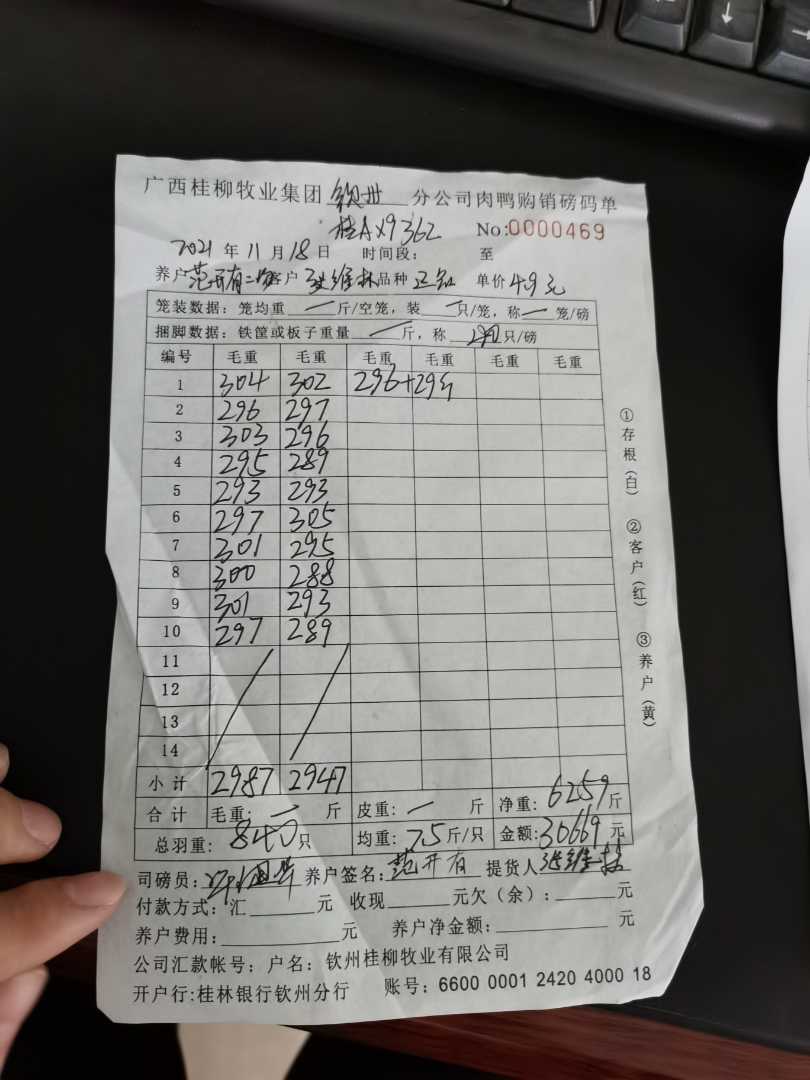 广西桂柳牧业集团 钦州 分公司肉鸭购销磅码单
桂AX9362 No:0000469
2021年11月18日 时间段: 至
养户范开有 客户 张维林 品种 单价4.9元
笼装数据:笼均重 — 斤/空笼,装 — 只/笼,称 — 笼/磅
捆脚数据:铁筐或板子重量 — 斤,称 只/磅
编号 毛重 毛重 毛重 毛重 毛重 毛重
1 304 302 296+
2 296 297
3 303 296
4 295 289
5 293 293
6 297 305
7 301 295
8 300 288
9 301 293
10 297 289
11
12
13
14
小计 2987 2947
合计 毛重: — 斤 皮重: — 斤 净重: 6259斤
总羽重: 840只 均重: 7.5斤/只 金额: 30669元
司磅员: 养户签名: 范开有 提货人张维林
付款方式:汇 元 收现 元欠(余): 元
养户费用: 元 养户净金额: 元
公司汇款帐号:户名:钦州桂柳牧业有限公司
开户行:桂林银行钦州分行 账号:6600 0001 2420 4000 18
①存根(白) ②客户(红) ③养户(黄)